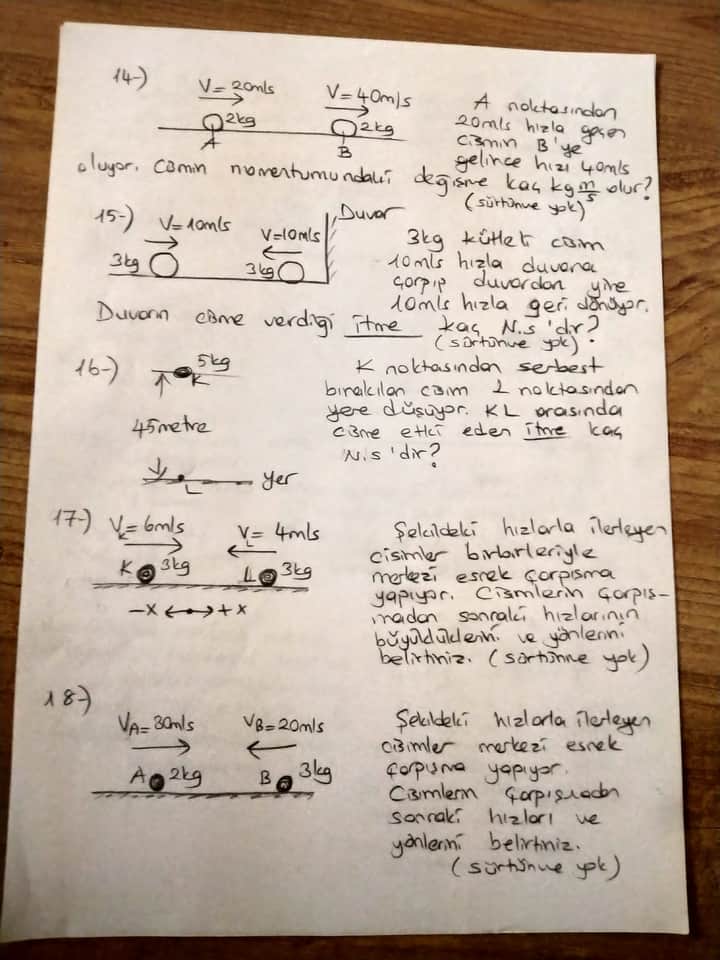 14-)
V=20m/s
V=40m/s
2kg
2kg
A
B
A noktasından
20m/s hızla geçen
cismin B'ye
gelince hızı 40m/s
oluyor. Cismin momentumundaki değişme kaç kg m/s olur?
(sürtünme yok)
15-)
V=10m/s
V=10m/s
Duvar
3kg
3kg
3kg kütleli cisim
10m/s hızla duvara
çarpıp duvardan yine
10m/s hızla geri dönüyor.
Duvarın cisme verdiği itme kaç N.s'dir?
(sürtünme yok)
16-)
5kg
K
45metre
L
yer
K noktasından serbest
bırakılan cisim L noktasından
yere düşüyor. KL arasında
cisme etki eden itme kaç
N.s'dir?
17-)
VK=6m/s
VL=4m/s
K 3kg
L 3kg
-x ↔ +x
Şekildeki hızlarla ilerleyen
cisimler birbirleriyle
merkezi esnek çarpışma
yapıyor. Cisimlerin çarpış-
madan sonraki hızlarının
büyüklüklerini ve yönlerini
belirtiniz. (sürtünme yok)
18-)
VA=30m/s
VB=20m/s
A 2kg
B 3kg
Şekildeki hızlarla ilerleyen
cisimler merkezi esnek
çarpışma yapıyor.
Cisimlerin çarpışmadan
sonraki hızları ve
yönlerini belirtiniz.
(sürtünme yok)